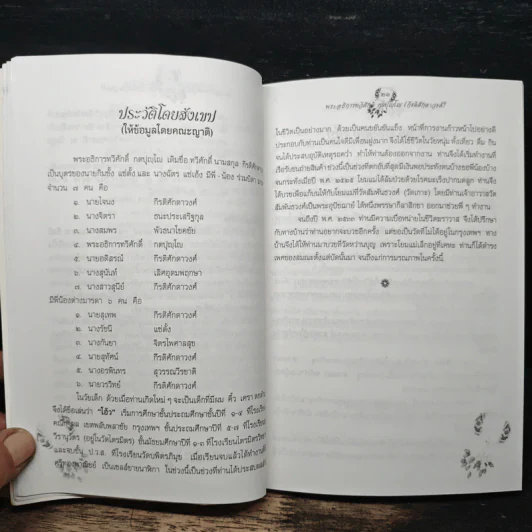 ประวัติโดยสังเขป
(ให้ข้อมูลโดยคณะญาติ)
พระอธิการทวีศักดิ์ กตปุญฺโญ เดิมชื่อ ทวีศักดิ์ นามสกุล กีรติศักดา
เป็นบุตรของนายกิมซ้ง แซ่ตั้ง และ นางฉัตร แซ่เอ็ง มีพี่-น้อง ร่วมบิดา
จำนวน ๗ คน คือ
๑. นายโจนง กีรติศักดาวงศ์
๒. นางจิตรา ธนะประเสริฐกูล
๓. นางสมพร พัวธนาโชคชัย
๔. พระอธิการทวีศักดิ์ กตปุญฺโญ
๕. นายอดิสรณ์ กีรติศักดาวงศ์
๖. นางสุนันท์ เลิศอุดมพฤกษา
๗. นางสาวสุนีย์ กีรติศักดาวงศ์
มีพี่น้องต่างมารดา ๖ คน คือ
๑. นายสุเทพ กีรติศักดาวงศ์
๒. นางวัชนี แซ่ตั้ง
๓. นางกันยา จิตรไพศาลสุข
๔. นายสุทัศน์ กีรติศักดาวงศ์
๕. นางอรพินทร สุวรรณวีรชาติ
๖. นายวรวิทย์ กีรติศักดาวงศ์
ในวัยเด็ก ด้วยเมื่อท่านเกิดใหม่ ๆ จะเป็นเด็กที่มีผม คิ้ว เครา
จึงได้ชื่อเล่นว่า "โฮ้ว" เริ่มการศึกษาชั้นประถมศึกษาชั้นปีที่ ๑-๔ ที่โรงเรียน
เขตพลับพลาชัย กรุงเทพฯ ชั้นประถมศึกษาปีที่ ๕-๗ ที่โรงเรียน
วิรานุวัตร (อยู่ในวัดไตรมิตร) ชั้นมัธยมศึกษาปีที่ ๑-๓ ที่โรงเรียนไตรมิตรวิทยา
และจบชั้น ป.ว.ส. ที่โรงเรียนวัดบพิตรภิมุข เมื่อเรียนจบแล้วได้ทำงานที่
เป็นเซลส์ขายนาฬิกา ในช่วงนี้เป็นช่วงที่ท่านได้ประสบ
๒๑
พระอธิการทวีศักดิ์ กตปุญฺโญ (กีรติศักดาวงศ์)
ในชีวิตเป็นอย่างมาก ด้วยเป็นคนขยันขันแข็ง หน้าที่การงานก้าวหน้าไปอย่างดี
ประกอบกับท่านเป็นคนใจดีมีเพื่อนฝูงมาก จึงได้ใช้ชีวิตในวัยหนุ่ม ทั้งเที่ยว ดื่ม กิน
จนได้ประสบอุบัติเหตุรถคว่ำ ทำให้ท่านต้องออกจากงาน ท่านจึงได้เริ่มทำงานที่
เรือรับขนถ่ายสินค้า ช่วงนี้เป็นช่วงที่ตกอับที่สุดมีเงินพอประทังตนบ้างขอพี่น้องบ้าง
จนกระทั่งเมื่อปี พ.ศ. ๒๕๔๙ โยมแม่ได้ล้มป่วยด้วยโรคมะเร็งปากมดลูก ท่านจึง
ได้บวชเพื่อแก้บนให้กับโยมแม่ที่วัดสัมพันธวงศ์ (วัดเกาะ) โดยมีท่านเจ้าอาวาสวัด
สัมพันธวงศ์เป็นพระอุปัชฌาย์ ได้หนึ่งพรรษาก็ลาสิกขา ออกมาช่วยพี่ ๆ ทำงาน
จนถึงปี พ.ศ. ๒๕๓๓ ท่านมีความเบื่อหน่ายในชีวิตฆราวาส จึงได้ปรึกษา
กับทางบ้านว่าท่านอยากจะบวชอีกครั้ง แต่ขอเป็นวัดที่ไม่ได้อยู่ในกรุงเทพฯ ทาง
บ้านจึงได้ให้ท่านมาบวชที่วัดหว่านบุญ เพราะโยมแม่เลิกอยู่ที่แคทะ ท่านก็ได้ดำรง
เพศของสมณะตั้งแต่บัดนั้นมา จนถึงแก่การมรณภาพในครั้งนี้.